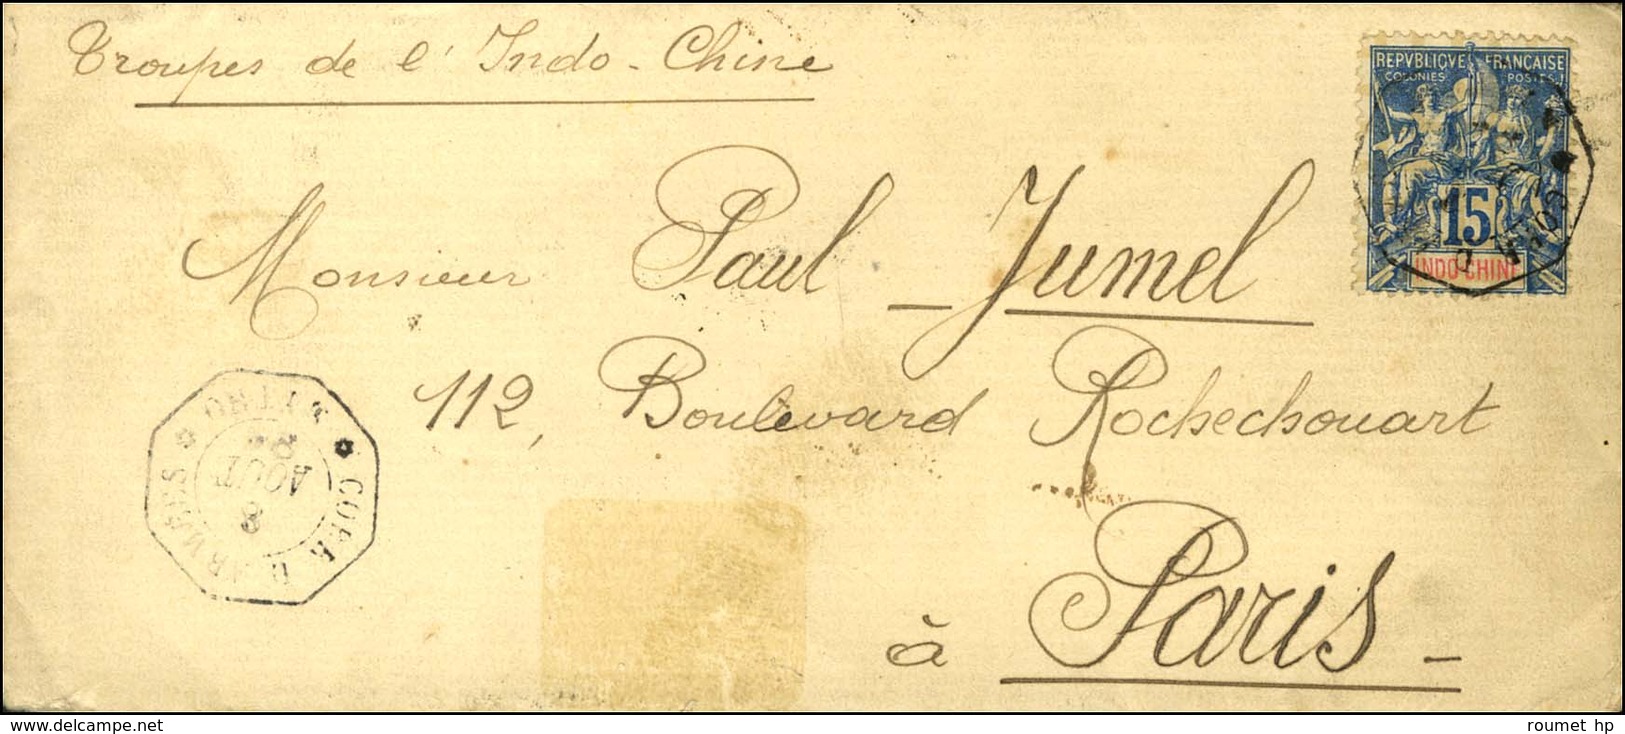 Troupes de l'Indo-Chine
REPVBLIQVE FRANÇAISE
COLONIES POSTES
15
INDO-CHINE
Monsieur Paul Jumel
112, Boulevard Rochechouart
à Paris
CORR D'ARMEES
8
AOUT
delcampe.net
roumet hp